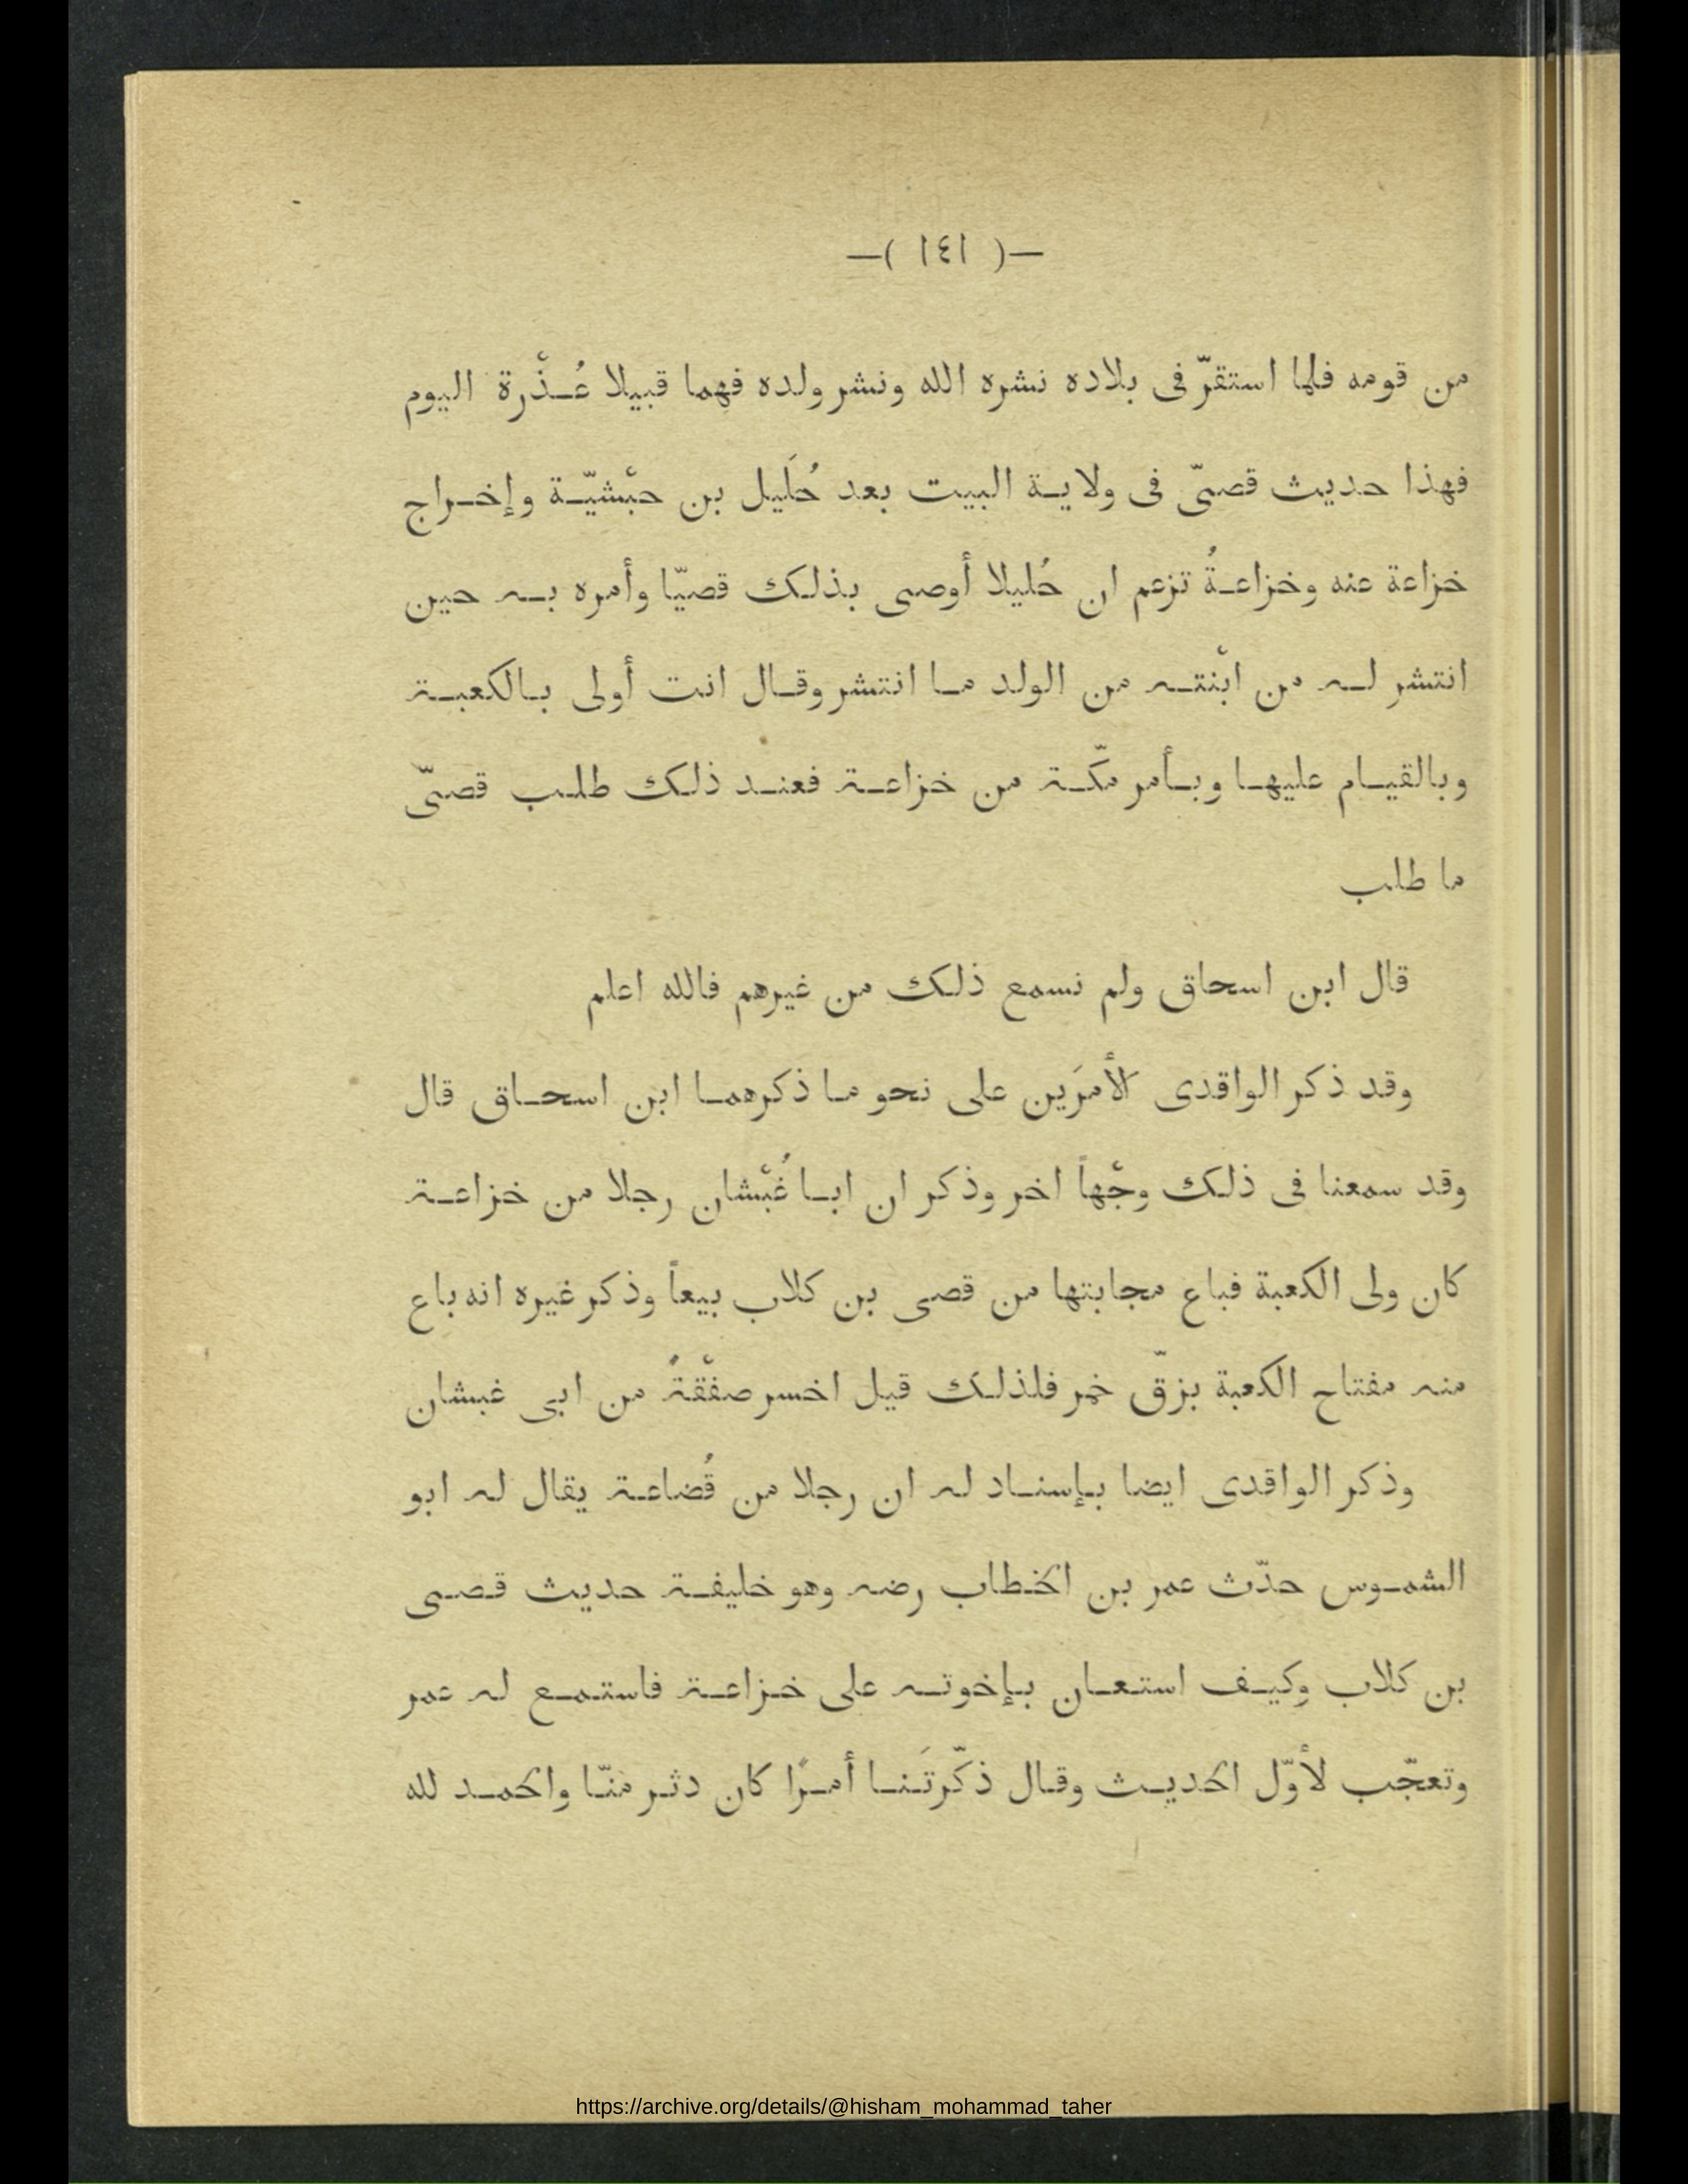 —( ١٤١ )—
من قومه فلما استقرّ فى بلاده نشره الله ونشر ولده فهما قبيلا عُذْرة اليوم
فهذا حديث قصىّ فى ولاية البيت بعد حُلَيل بن حبْشيّة وإخراج
خزاعة عنه وخزاعةُ تزعم ان حُليلا أوصى بذلك قصيّا وأمره به حين
انتشر له من ابْنته من الولد ما انتشر وقال انت أولى بالكعبة
وبالقيام عليها وبأمر مكّة من خزاعة فعند ذلك طلب قصىّ
ما طلب
قال ابن اسحاق ولم نسمع ذلك من غيرهم فالله اعلم
وقد ذكر الواقدى الأمرَين على نحو ما ذكرهما ابن اسحاق قال
وقد سمعنا فى ذلك وجْهاً اخر وذكر ان ابا غُبْشان رجلا من خزاعة
كان ولى الكعبة فباع مجابتها من قصى بن كلاب بيعاً وذكر غيره انه باع
منه مفتاح الكعبة بزقّ خمر فلذلك قيل اخسر صفْقةً من ابى غبشان
وذكر الواقدى ايضا بإسناد له ان رجلا من قُضاعة يقال له ابو
الشموس حدّث عمر بن الخطاب رضه وهو خليفة حديث قصى
بن كلاب وكيف استعان بإخوته على خزاعة فاستمع له عمر
وتعجّب لأوّل الحديث وقال ذكّرتَنا أمرًا كان دثر منّا والحمد لله
https://archive.org/details/@hisham_mohammad_taher